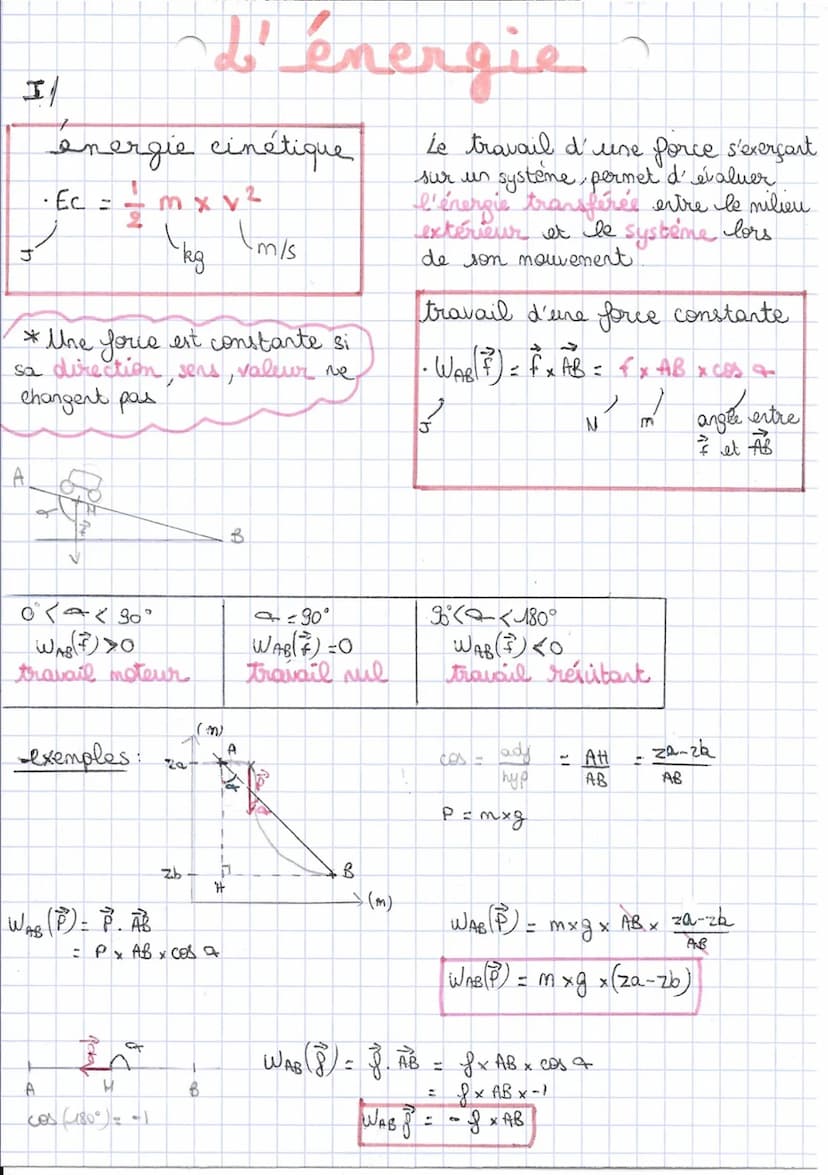 L'énergie
I/
énergie cinétique
· Ec = 1/2 m x v²
J kg m/s
Le travail d'une force s'exerçant
sur un système, permet d'évaluer
l'énergie transférée entre le milieu
extérieur et le système lors
de son mouvement.
* Une force est constante si
sa direction, sens, valeur ne
changent pas
travail d'une force constante
· W_AB(f⃗) = f⃗ x AB⃗ = f x AB x cos α
J N m angle entre
f⃗ et AB⃗
A
α M
f⃗
B
0° < α < 90°
W_AB(f⃗) > 0
travail moteur
α = 90°
W_AB(f⃗) = 0
travail nul
90° < α < 180°
W_AB(f⃗) < 0
travail résistant
exemples :
(m)
za A
α P⃗
α
zb H B
(m)
cos = adj/hyp = AH/AB = za-zb/AB
P = m x g
W_AB(P⃗) = P⃗ . AB⃗
= P x AB x cos α
W_AB(P⃗) = m x g x AB x za-zb/AB
W_AB(P⃗) = m x g x (za-zb)
f⃗ α
A M B
cos(180°) = -1
W_AB(f⃗) = f⃗ . AB⃗ = f x AB x cos α
= f x AB x -1
W_AB f⃗ = - f x AB